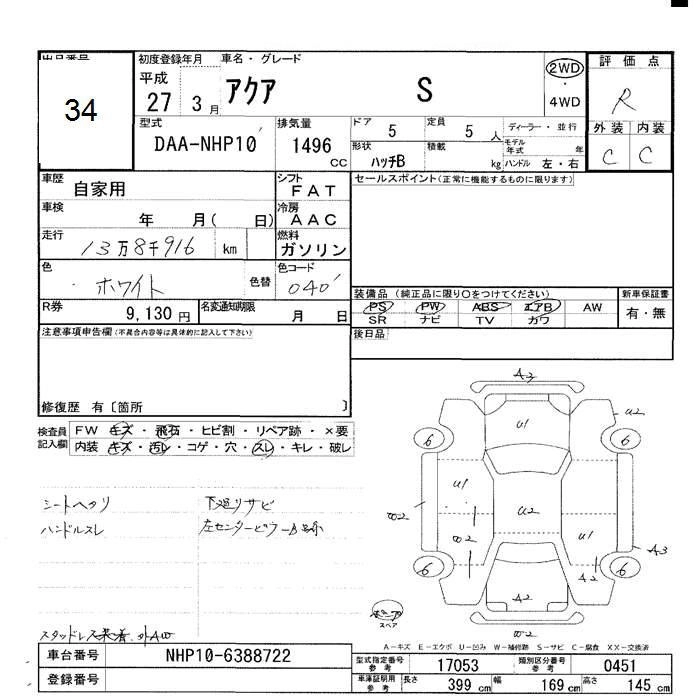 34
初度登録年月
平成 27 3月
車名・グレード
アクア S
2WD
・
4WD
評価点
R
外装 内装
C C
型式
DAA-NHP10
排気量
1496 CC
ドア 5
定員 5 人
ディーラー・並行
形状 ハッチB
積載 kg
モデル年式 年
ハンドル 左・右
車歴 自家用
シフト FAT
セールスポイント(正常に機能するものに限ります)
車検 年 月( 日)
冷房 AAC
走行 13万8千916 km
燃料 ガソリン
色 ホワイト 色替
色コード 040
装備品 (純正品に限り○をつけてください)
新車保証書
PS PW ABS エアB AW
有・無
SR ナビ TV カワ
R券 9,130 円
名変通知期限 月 日
後日品
注意事項申告欄(不具合内容等は具体的に記入して下さい)
修復歴 有〔箇所 〕
検査員記入欄
FW キズ・飛石・ヒビ割・リペア跡・×要
内装 キズ・汚レ・コゲ・穴・スレ・キレ・破レ
シートヘタリ
下廻リサビ
ハンドルスレ
A3
U1
U2
6 6
U1
W2
U2
W2
U1
A3
6 6
A2
A2
W2
スペア
A-キズ E-エクボ U-凹み W-補修跡 S-サビ C-腐食 XX-交換済
車台番号 NHP10-6388722
登録番号
型式指定番号 参考 17053
類別区分番号 参考 0451
車庫証明用 参考 長さ 399 cm 幅 169 cm 高さ 145 cm